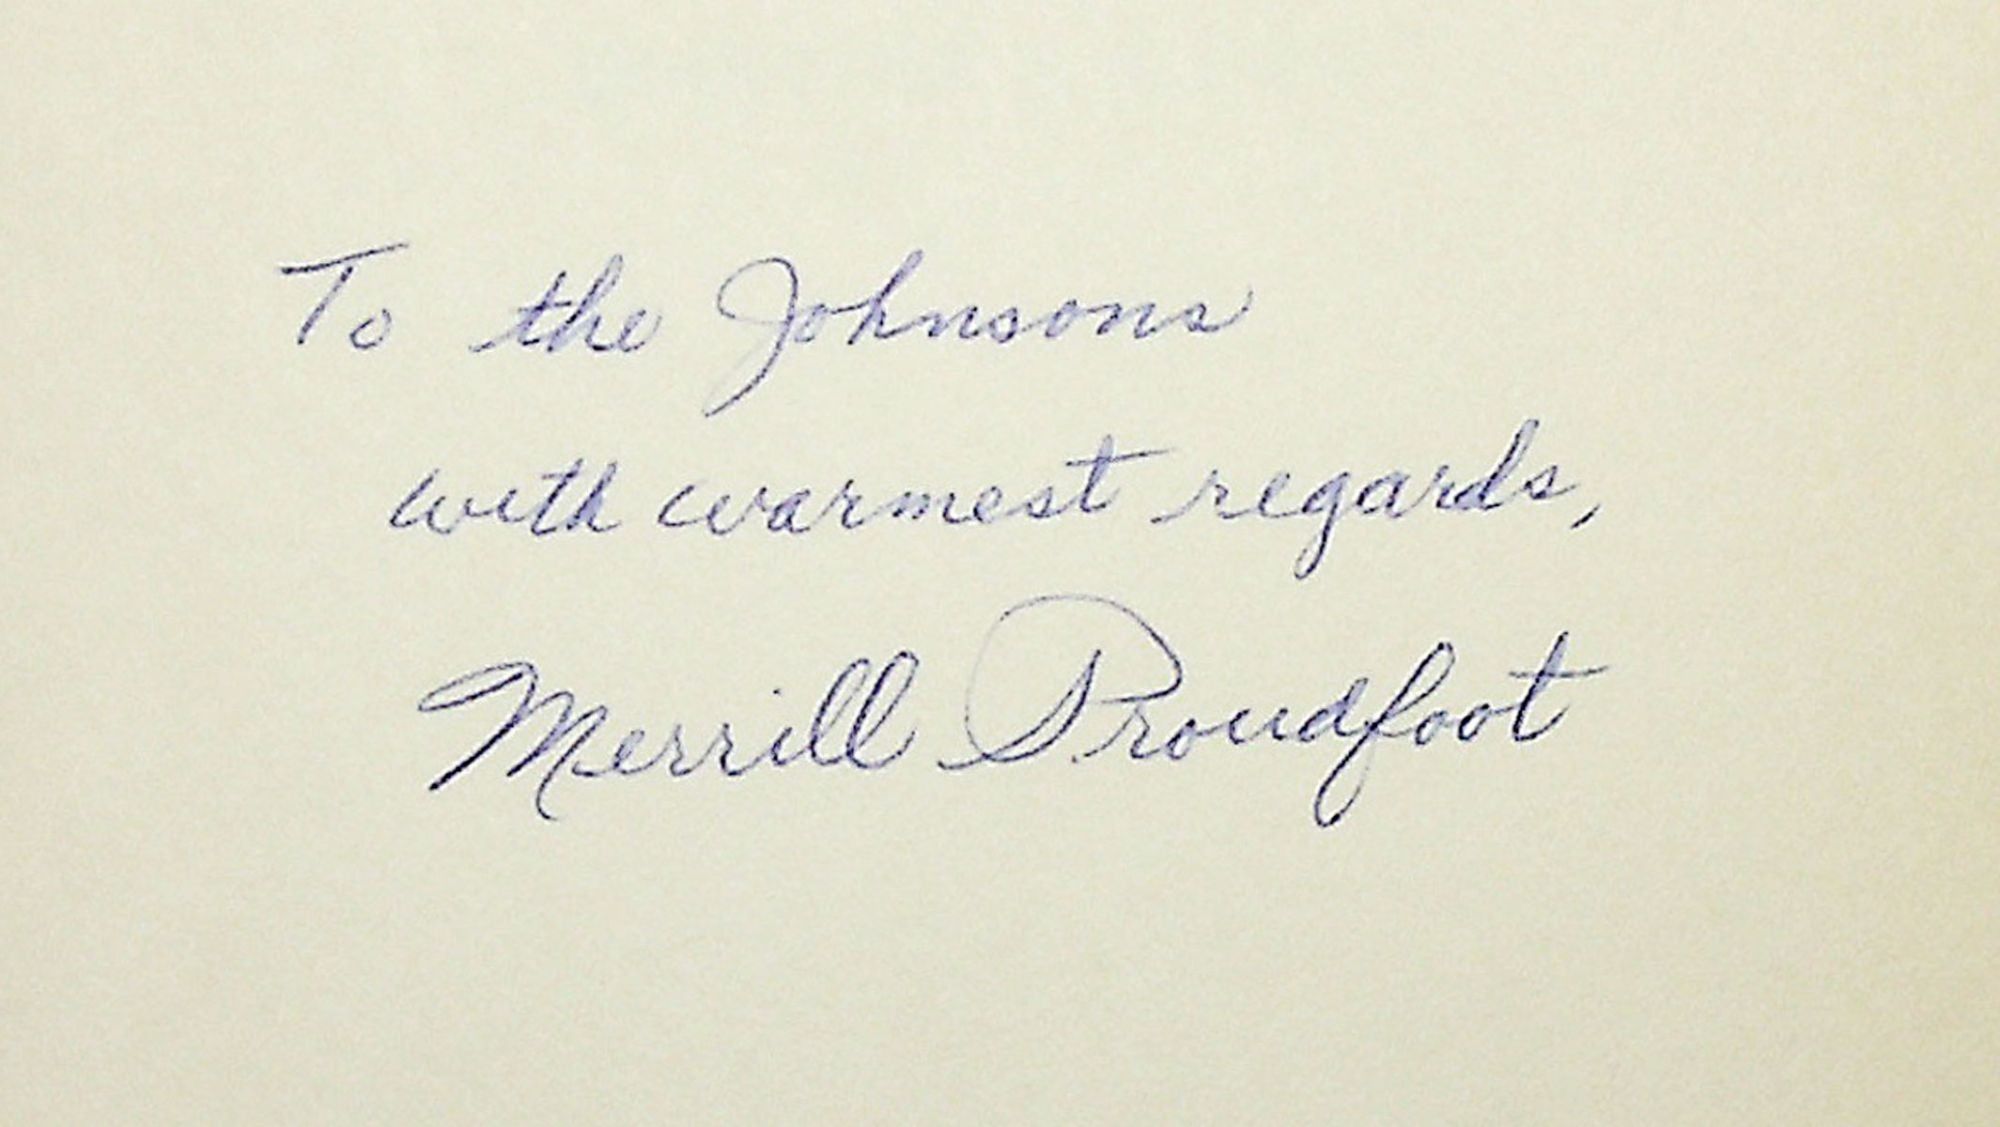 To the Johnsons
with warmest regards,
Merrill Proudfoot